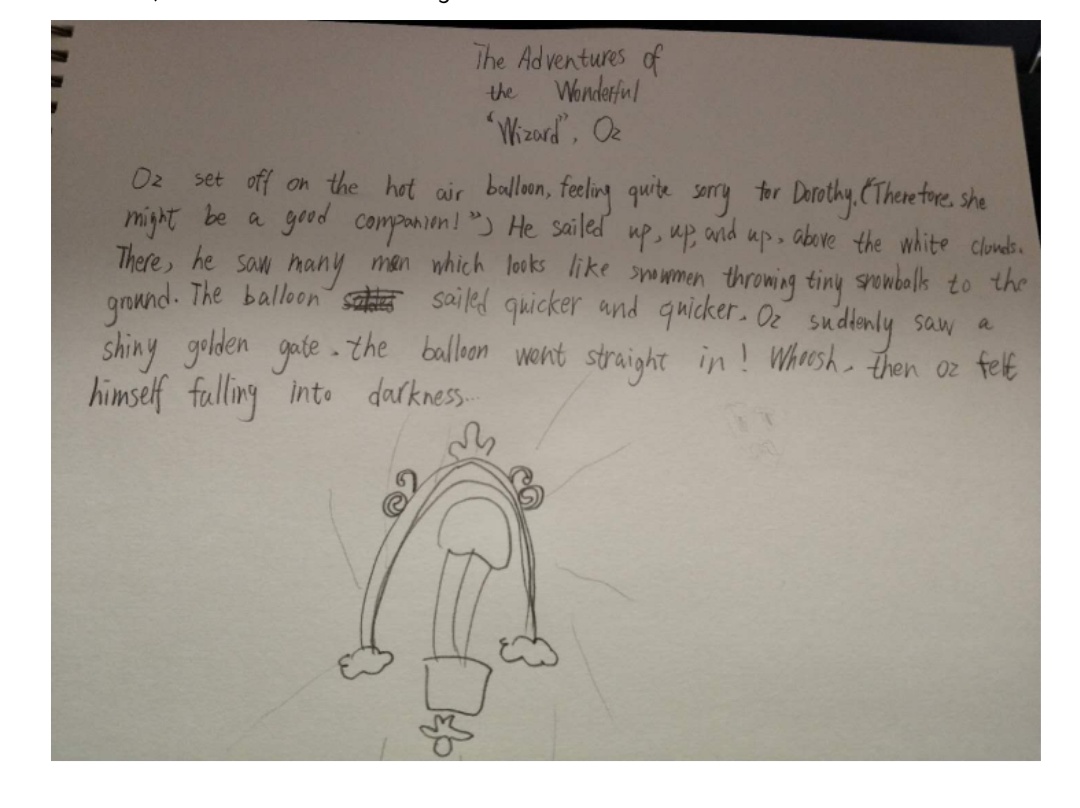 The Adventures of
the Wonderful
"Wizard", Oz
Oz set off on the hot air balloon, feeling quite sorry for Dorothy. ("Therefore, she
might be a good companion!") He sailed up, up, and up, above the white clouds.
There, he saw many men which looks like snowmen throwing tiny snowballs to the
ground. The balloon sailed quicker and quicker. Oz suddenly saw a
shiny golden gate. the balloon went straight in! Whoosh, then oz felt
himself falling into darkness...